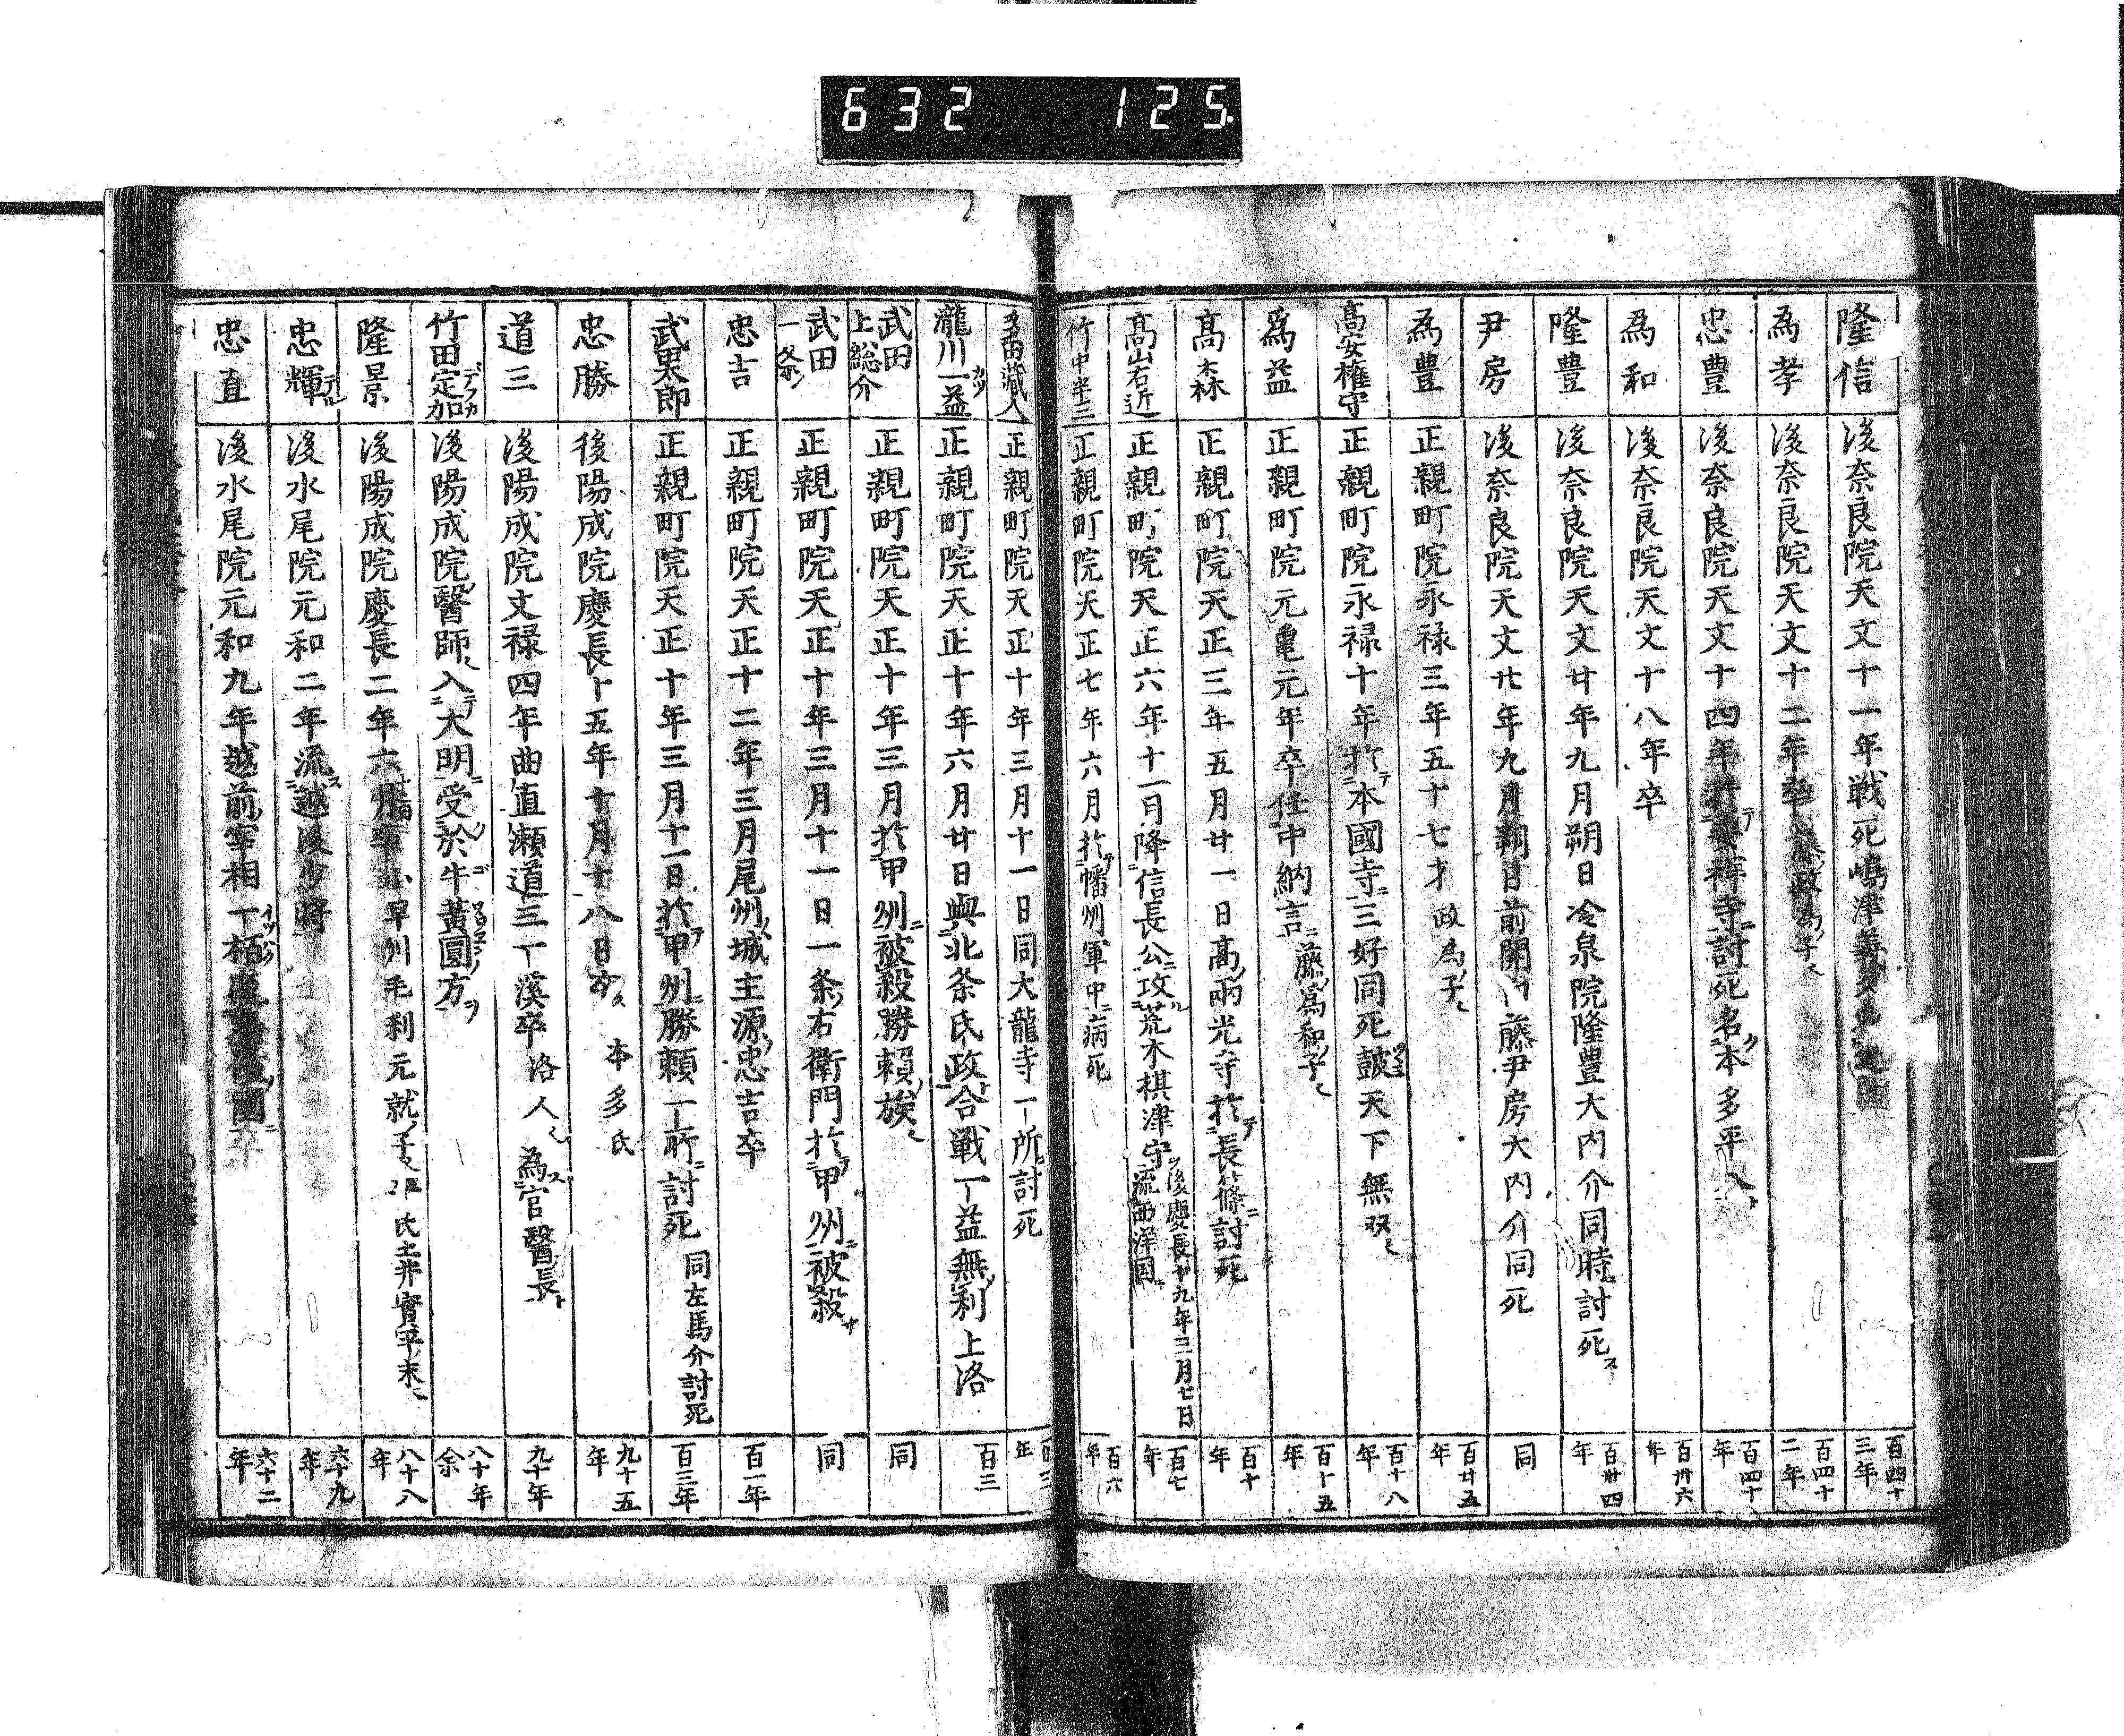 632 125
隆信 後奈良院天文十一年戦死嶋津義久
百四十三年
為孝 後奈良院天文十二年卒 藤政為ノ子
百四十二年
忠豊 後奈良院天文十四年於テ安祥寺ニ討死名ク本多平八ト
百四十年
為和 後奈良院天文十八年卒
百卅六年
隆豊 後奈良院天文廿年九月朔日冷泉院隆豊大内介同時討死ス
百卅四年
尹房 後奈良院天文廿年九月朔日前関白藤尹房大内介同死
同
為豊 正親町院永禄三年五十七才 政為ノ子
百廿五年
髙安権守 正親町院永禄十年於テ本國寺ニ三好同死鼓天下無双
百十八年
為益 正親町院元亀元年卒任中納言ニ 藤為和ノ子
百十五年
髙森 正親町院天正三年五月廿一日髙雨光寺於テ長篠ニ討死
百十年
髙山右近 正親町院天正六年十一月降信長公ニ攻ル荒木摂津守ヲ 後慶長十九年三月七日流西洋国
百七年
竹中半三 正親町院天正七年六月於テ幡州軍中ニ病死
百六年
多田蔵人 正親町院天正十年三月十一日同大龍寺一所ニ討死
百三年
瀧川一益 正親町院天正十年六月廿日與北条氏政合戦一益無利上洛
百三
武田上総介 正親町院天正十年三月於甲州ニ被殺勝賴ノ族
同
武田一条 正親町院天正十年三月十一日一条右衛門於テ甲州ニ被殺サ
同
忠吉 正親町院天正十二年三月尾州城主源忠吉卒
百一年
武田太郎 正親町院天正十年三月十一日於テ甲州ニ勝賴一所ニ討死 同左馬介討死
百三年
忠勝 後陽成院慶長十五年十月十八日卒 本多氏
九十五年
道三 後陽成院文禄四年曲直瀬道三一溪卒 洛人 為ス官醫ノ長ト
九十年
竹田定加 後陽成院ノ醫師入テ大明ニ受ク於牛黄圓ノ方ヲ
八十年余
隆景 後陽成院慶長二年六月卒 小早川毛利元就ノ子 氏土井實平ノ末
八十八年
忠輝 後水尾院元和二年流ス越後少将
六十九年
忠直 後水尾院元和九年越前宰相一栢
六十二年